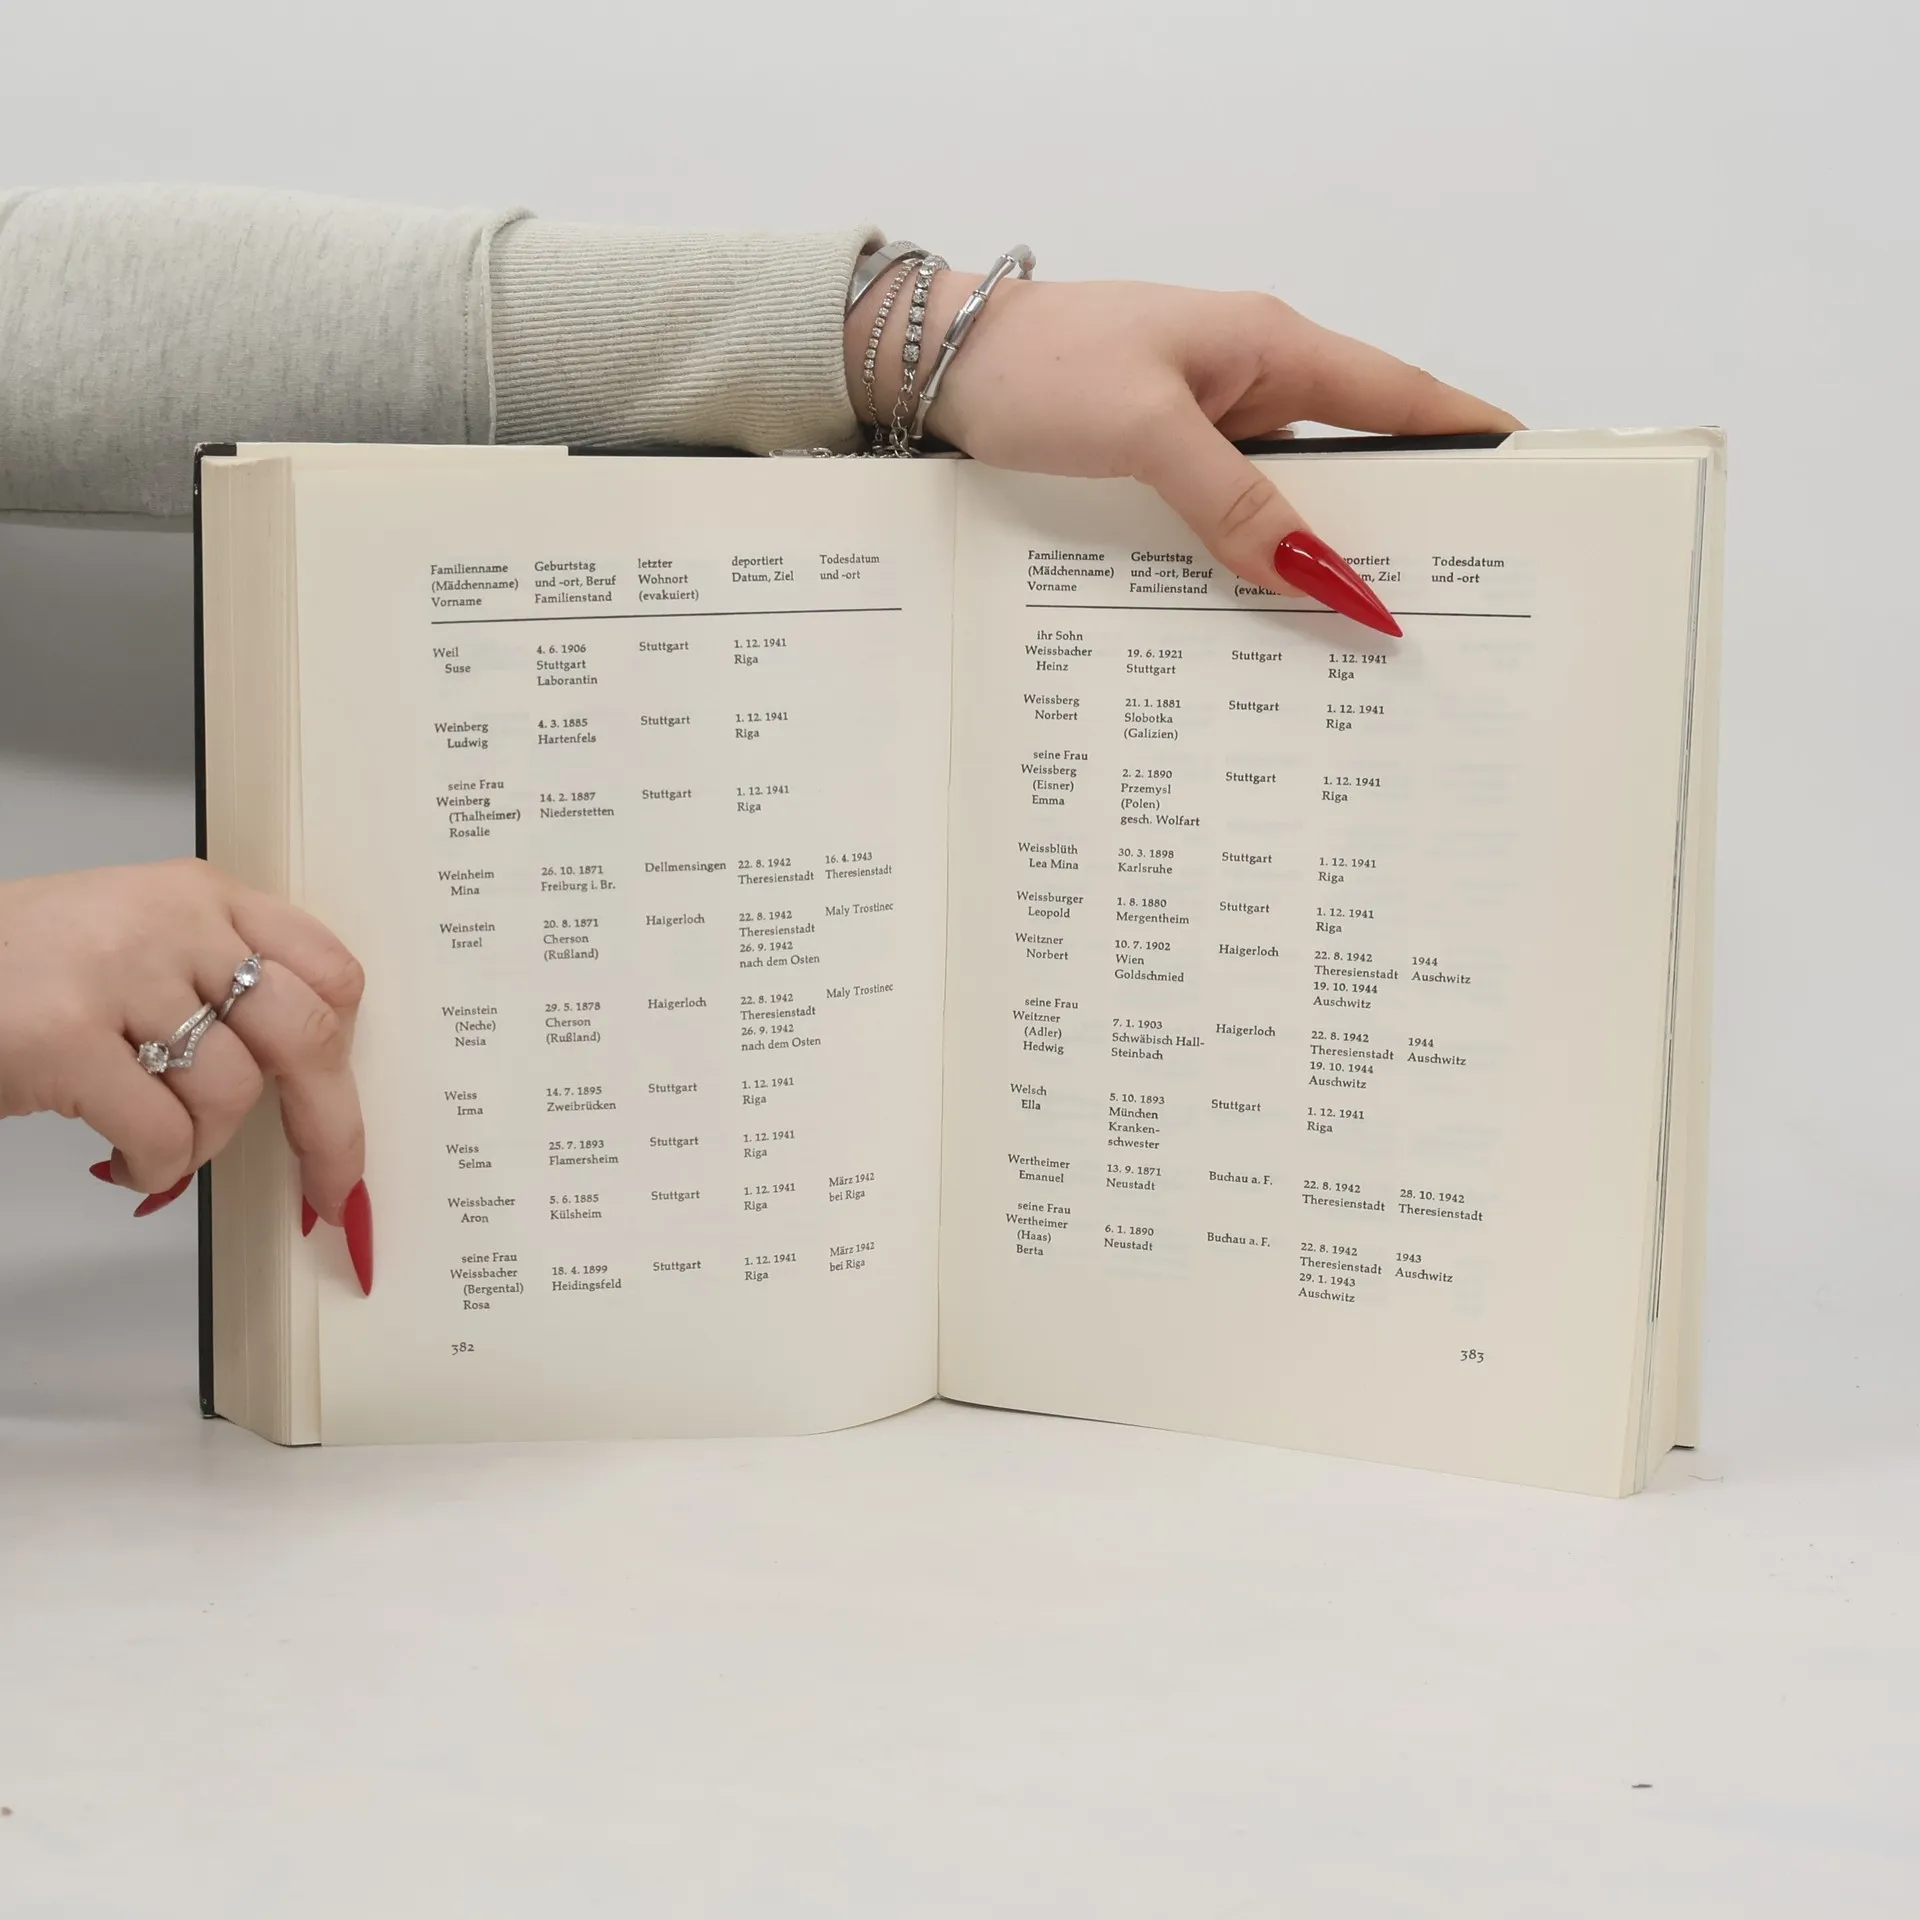 Familienname Geburtstag letzter deportiert Todesdatum
(Mädchenname) und -ort, Beruf Wohnort Datum, Ziel und -ort
Vorname Familienstand (evakuiert)
Weil 4. 6. 1906 Stuttgart 1. 12. 1941
Suse Stuttgart Riga
Laborantin
Weinberg 4. 3. 1885 Stuttgart 1. 12. 1941
Ludwig Hartenfels Riga
seine Frau
Weinberg 14. 2. 1887 Stuttgart 1. 12. 1941
(Thalheimer) Niederstetten Riga
Rosalie
Weinheim 26. 10. 1871 Dellmensingen 22. 8. 1942 16. 4. 1943
Mina Freiburg i. Br. Theresienstadt Theresienstadt
Weinstein 20. 8. 1871 Haigerloch 22. 8. 1942 Maly Trostinec
Israel Cherson Theresienstadt
(Rußland) 26. 9. 1942
nach dem Osten
Weinstein 29. 5. 1878 Haigerloch 22. 8. 1942 Maly Trostinec
(Neche) Cherson Theresienstadt
Nesia (Rußland) 26. 9. 1942
nach dem Osten
Weiss 14. 7. 1895 Stuttgart 1. 12. 1941
Irma Zweibrücken Riga
Weiss 25. 7. 1893 Stuttgart 1. 12. 1941
Selma Flamersheim Riga
Weissbacher 5. 6. 1885 Stuttgart 1. 12. 1941 März 1942
Aron Külsheim Riga bei Riga
seine Frau
Weissbacher 18. 4. 1899 Stuttgart 1. 12. 1941 März 1942
(Bergental) Heidingsfeld Riga bei Riga
Rosa
382
Familienname Geburtstag Todesdatum
(Mädchenname) und -ort, Beruf Ziel und -ort
Vorname Familienstand
ihr Sohn
Weissbacher 19. 6. 1921 Stuttgart 1. 12. 1941
Heinz Stuttgart Riga
Weissberg 21. 1. 1881 Stuttgart 1. 12. 1941
Norbert Slobotka Riga
(Galizien)
seine Frau
Weissberg 2. 2. 1890 Stuttgart 1. 12. 1941
(Eisner) Przemysl Riga
Emma (Polen)
gesch. Wolfart
Weissblüth 30. 3. 1898 Stuttgart 1. 12. 1941
Lea Mina Karlsruhe Riga
Weissburger 1. 8. 1880 Stuttgart 1. 12. 1941
Leopold Mergentheim Riga
Weitzner 10. 7. 1902 Haigerloch 22. 8. 1942 1944
Norbert Wien Theresienstadt Auschwitz
Goldschmied 19. 10. 1944
Auschwitz
seine Frau
Weitzner 7. 1. 1903 Haigerloch 22. 8. 1942 1944
(Adler) Schwäbisch Hall- Theresienstadt Auschwitz
Hedwig Steinbach 19. 10. 1944
Auschwitz
Welsch 5. 10. 1893 Stuttgart 1. 12. 1941
Ella München Riga
Kranken-
schwester
Wertheimer 13. 9. 1871 Buchau a. F. 22. 8. 1942 28. 10. 1942
Emanuel Neustadt Theresienstadt Theresienstadt
seine Frau
Wertheimer 6. 1. 1890 Buchau a. F. 22. 8. 1942 1943
(Haas) Neustadt Theresienstadt Auschwitz
Berta 29. 1. 1943
Auschwitz
383